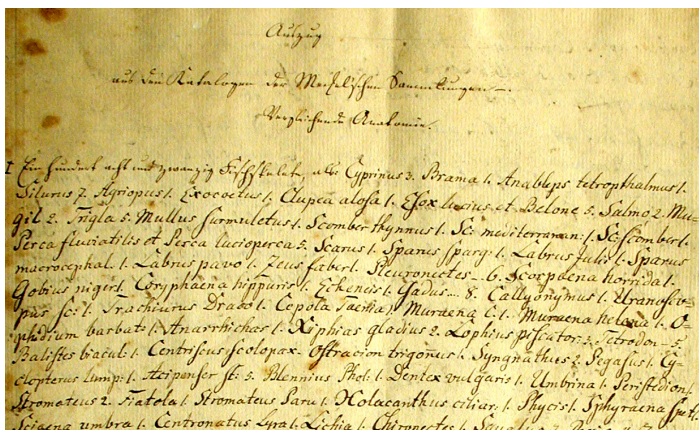 Auszug
aus den Katalogen der Meckel'schen Sammlungen.
Vergleichende Anatomie.
I Ein hundert acht und zwanzig Fischskelete, als Cyprinus 3. Brama 1. Anableps tetropthalmus 1.
Silurus 7. Agriopus 1. Exocoetus 1. Clupea alosa 1. Esox lucius et Belone 5. Salmo 2. Mu-
gil 2. Trigla 5. Mullus surmuletus 1. Scomber thynnus 1. Sc: mediterran: 1. Sc: scomber 1.
Perca fluviatilis et Perca lucioperca 5. Scarus 1. Sparus sparg: 1. Labrus julis 1. Sparus
macrocephal. 1. Labrus pavo 1. Zeus faber 1. Pleuronectes 6. Scorpaena horrida 1.
Gobius niger 1. Coryphaena hippuris 1. Echeneis 1. Gadus 8. Callyonymus 1. Uranosco-
pus sc: 1. Trachiurus Draco 1. Cepola Taenia 1. Muraena C: 1. Muraena helena 1. O-
phidium barbat: 1. Anarrhichas 1. Xiphias gladius 2. Lophius piscator: 3. Tetrodon 5.
Balistes biacul: 1. Centriscus scolopax. Ostracion trigonus 1. Syngnathus 2. Pegasus 1. Cy-
clopterus lump: 1. Acipenser st: 5. Blennius Phol: 1. Dentex vulgaris 1. Umbrina 1. Peristedion 1.
Stromateus 2. Fiatola 1. Stromateus Paru 1. Holacanthus ciliar: 1. Phycis 1. Sphyraena spet: 1.
Sciaena umbra 1. Centronatus Lyra 1. Lichia 1. Chironectes 1.